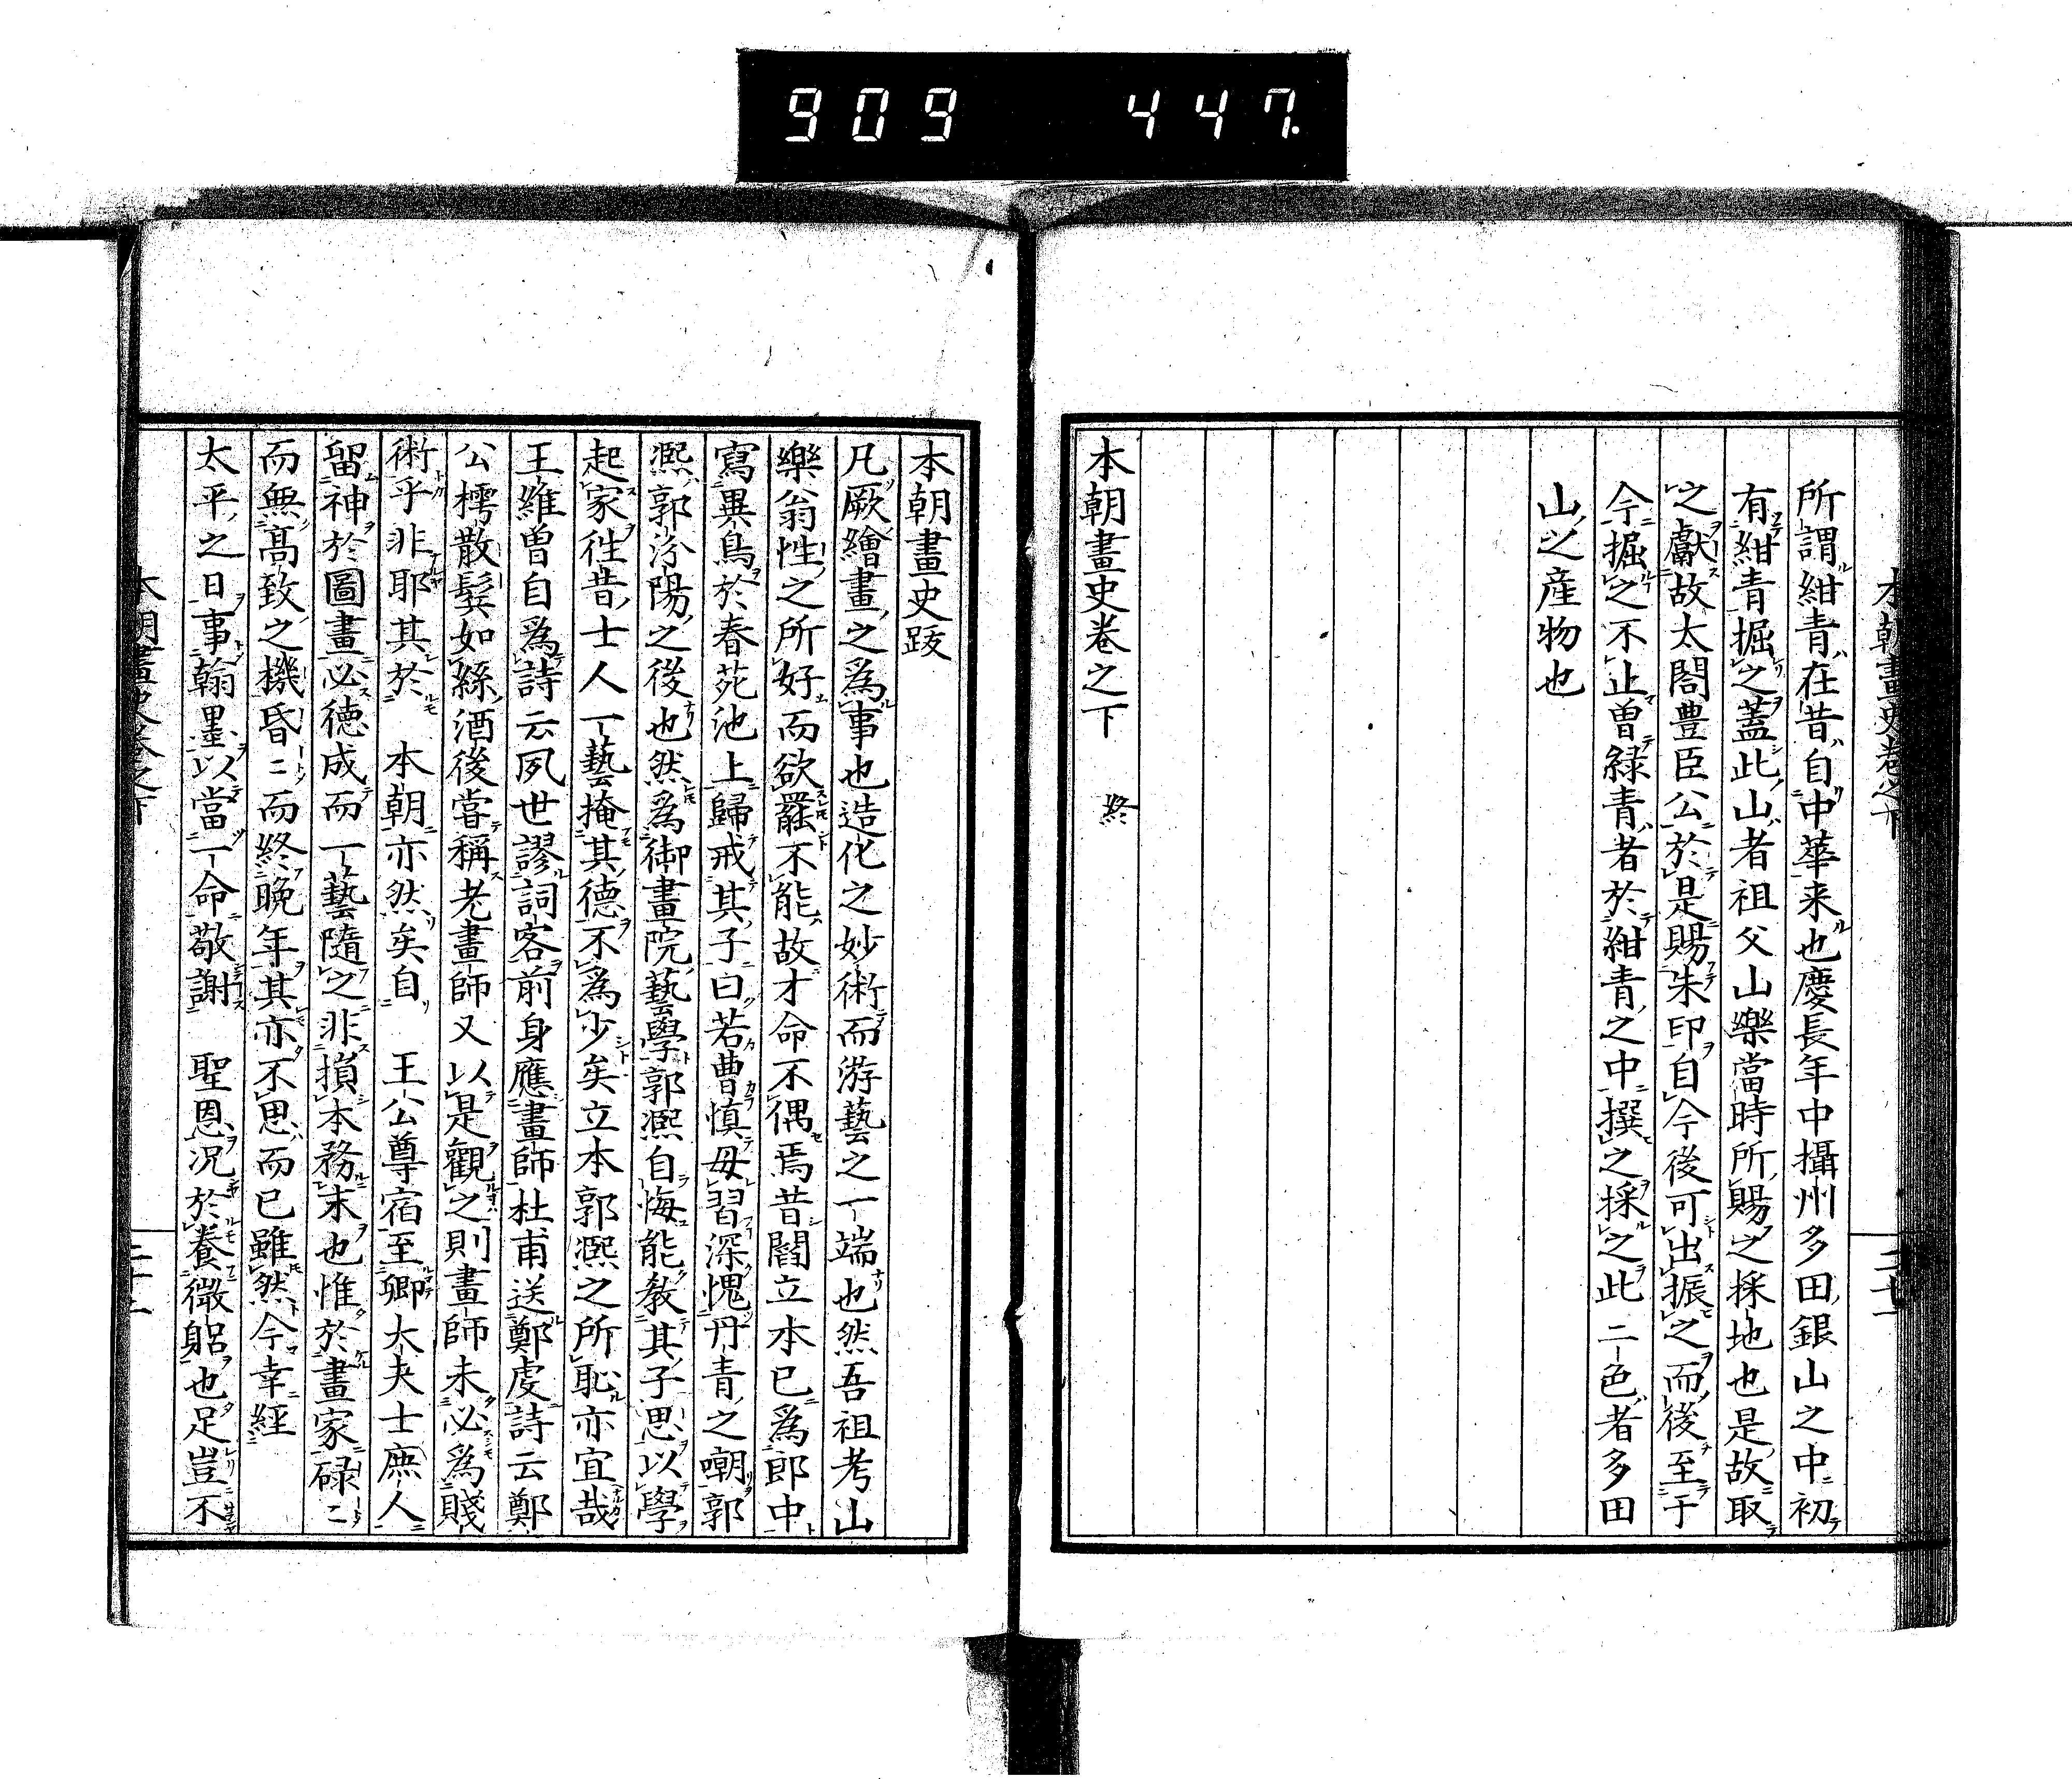 909 447.
本朝畫史卷之下
所謂紺青在昔自中華来也慶長年中攝州多田銀山之中初
有紺青掘之蓋此山者祖父山樂當時所賜之採地也是故取
之獻故太閤豊臣公於是賜朱印自今後可出振之而後至于
今掘之不止曽緑青者於紺青之中撰之採之此二色者多田
山之産物也
本朝畫史卷之下 終
本朝畫史跋
凡厥繪畫之爲事也造化之妙術而游藝之一端也然吾祖考山
樂翁性之所好而欲罷不能故才命不偶焉昔閻立本已爲郎中
寫異鳥於春苑池上歸戒其子曰若曹慎毋習深愧丹青之嘲郭
凞郭汾陽之後也然爲御畫院藝學郭凞自悔能教其子思以學
起家徃昔士人一藝掩其德不爲少矣立本郭凞之所恥亦宜哉
王維曽自爲詩云夙世謬詞客前身應畫師杜甫送鄭虔詩云鄭
公樗散鬂如絲酒後甞稱老畫師又以是觀之則畫師未必爲賤
術乎非耶其於 本朝亦然矣自 王公尊宿至卿大夫士庶人
留神於圖畫必德成而一藝隨之非損本務末也惟於畫家碌〻
而無髙致之機昏〻而終晩年其亦不思而已雖然今幸經
太平之日事翰墨以當一命敬謝 聖恩况於養微躳也足豈不
本朝畫史卷之下